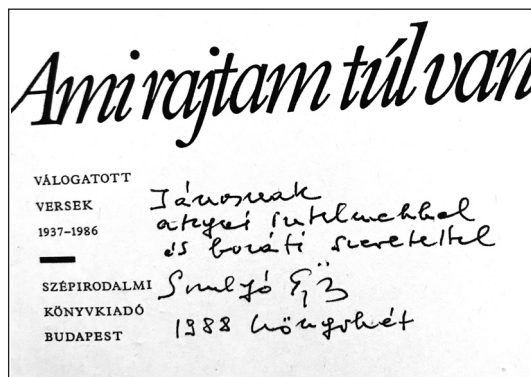 Ami rajtam túl van
VÁLOGATOTT
VERSEK
1937–1986
SZÉPIRODALMI
KÖNYVKIADÓ
BUDAPEST
Jánosnak
atyai intelmekkel
és baráti szeretettel
Somlyó
1988 könyvhét